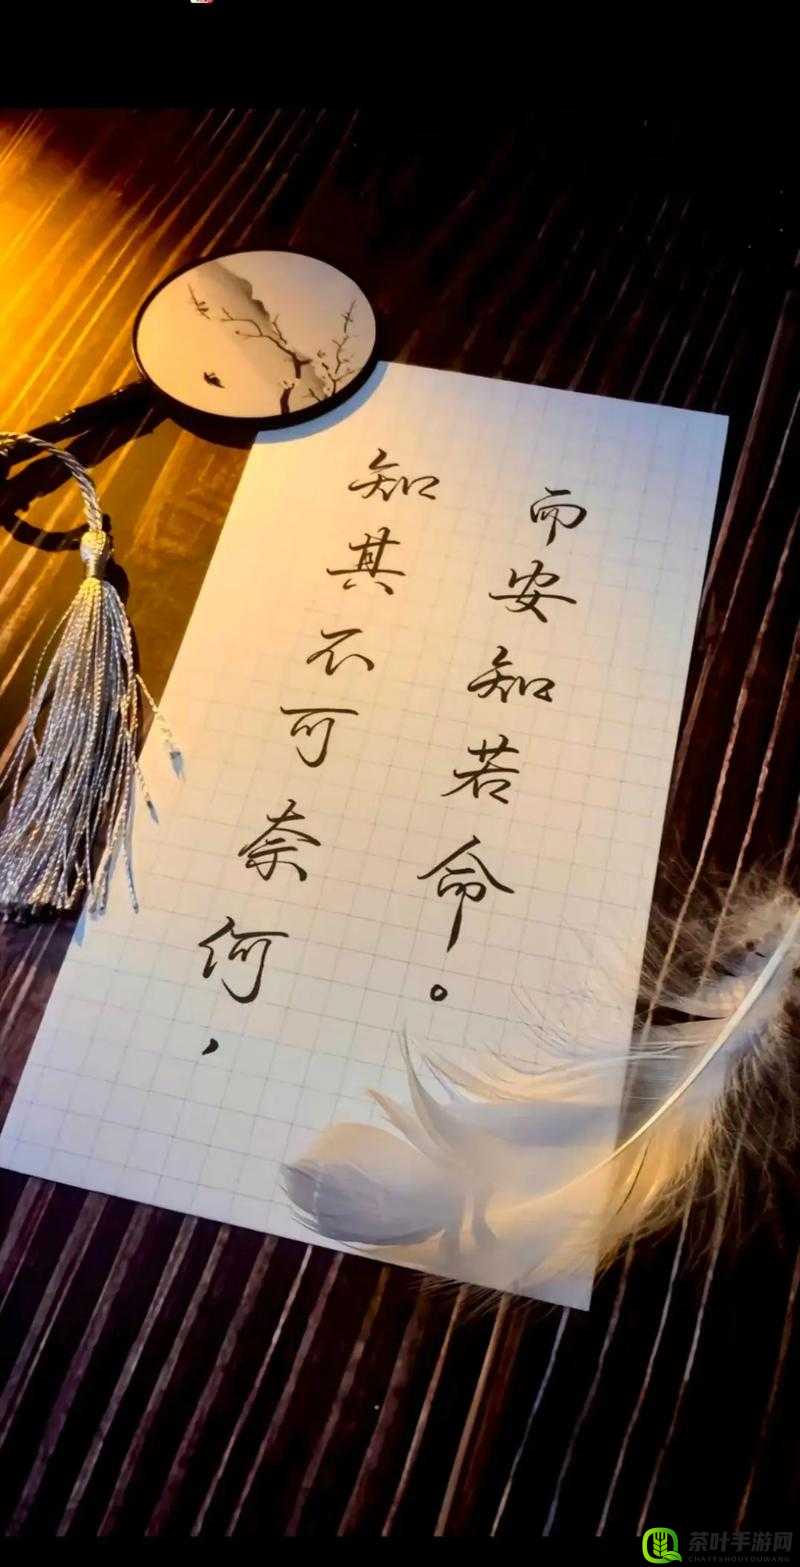 知其不可奈何，
而安知若命。
茶叶手游网
CHAYESHOUYOUWANG